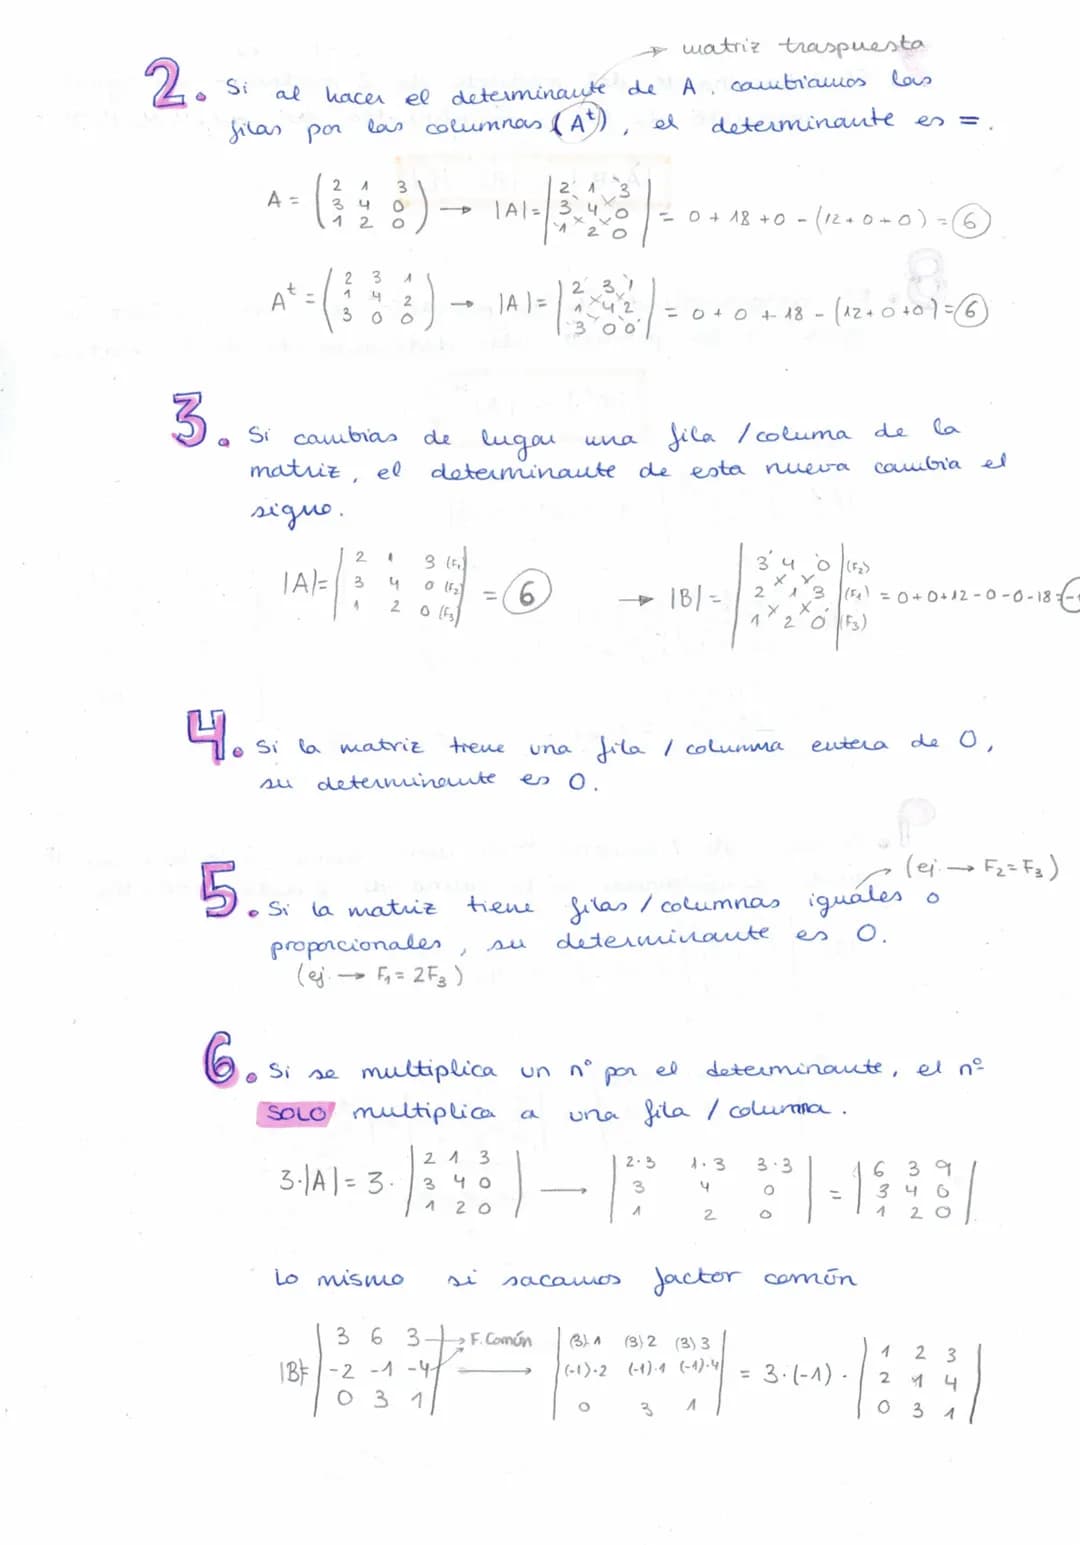 → matriz traspuesta
2. Si al hacer el determinante de A cambiamos las
filas por las columnas (Aᵗ), el determinante es =.
A = ( 2 1 3 / 3 4 0 / 1 2 0 ) → |A| = | 2 1 3 / 3 4 0 / 1 2 0 | = 0 + 18 + 0 - (12 + 0 + 0) = 6
Aᵗ = ( 2 3 1 / 1 4 2 / 3 0 0 ) → |A| = | 2 3 1 / 1 4 2 / 3 0 0 | = 0 + 0 + 18 - (12 + 0 + 0) = 6
3. Si cambias de lugar una fila / columa de la
matriz, el determinante de esta nueva cambia el
signo.
|A| = | 2 1 3 (F₁) / 3 4 0 (F₂) / 1 2 0 (F₃) | = 6 → |B| = | 3 4 0 / 2 1 3 / 1 2 0 | (F₂) (F₁) (F₃) = 0 + 0 + 12 - 0 - 0 - 18 = -
4. Si la matriz tiene una fila / columna entera de 0,
su determinante es 0.
(ej. → F₂ = F₃)
5. Si la matriz tiene filas / columnas iguales o
proporcionales, su determinante es 0.
(ej. → F₁ = 2F₃)
6. Si se multiplica un nº por el determinante, el nº
SOLO multiplica a una fila / columna.
3·|A| = 3· | 2 1 3 / 3 4 0 / 1 2 0 | → | 2·3 1·3 3·3 / 3 4 0 / 1 2 0 | = | 6 3 9 / 3 4 0 / 1 2 0 |
Lo mismo si sacamos factor común
|B| = | 3 6 3 / -2 -1 -4 / 0 3 1 | → F. Común → | (3)·1 (3)2 (3)3 / (-1)·2 (-1)·1 (-1)·4 / 0 3 1 | = 3·(-1)· | 1 2 3 / 2 1 4 / 0 3 1 |